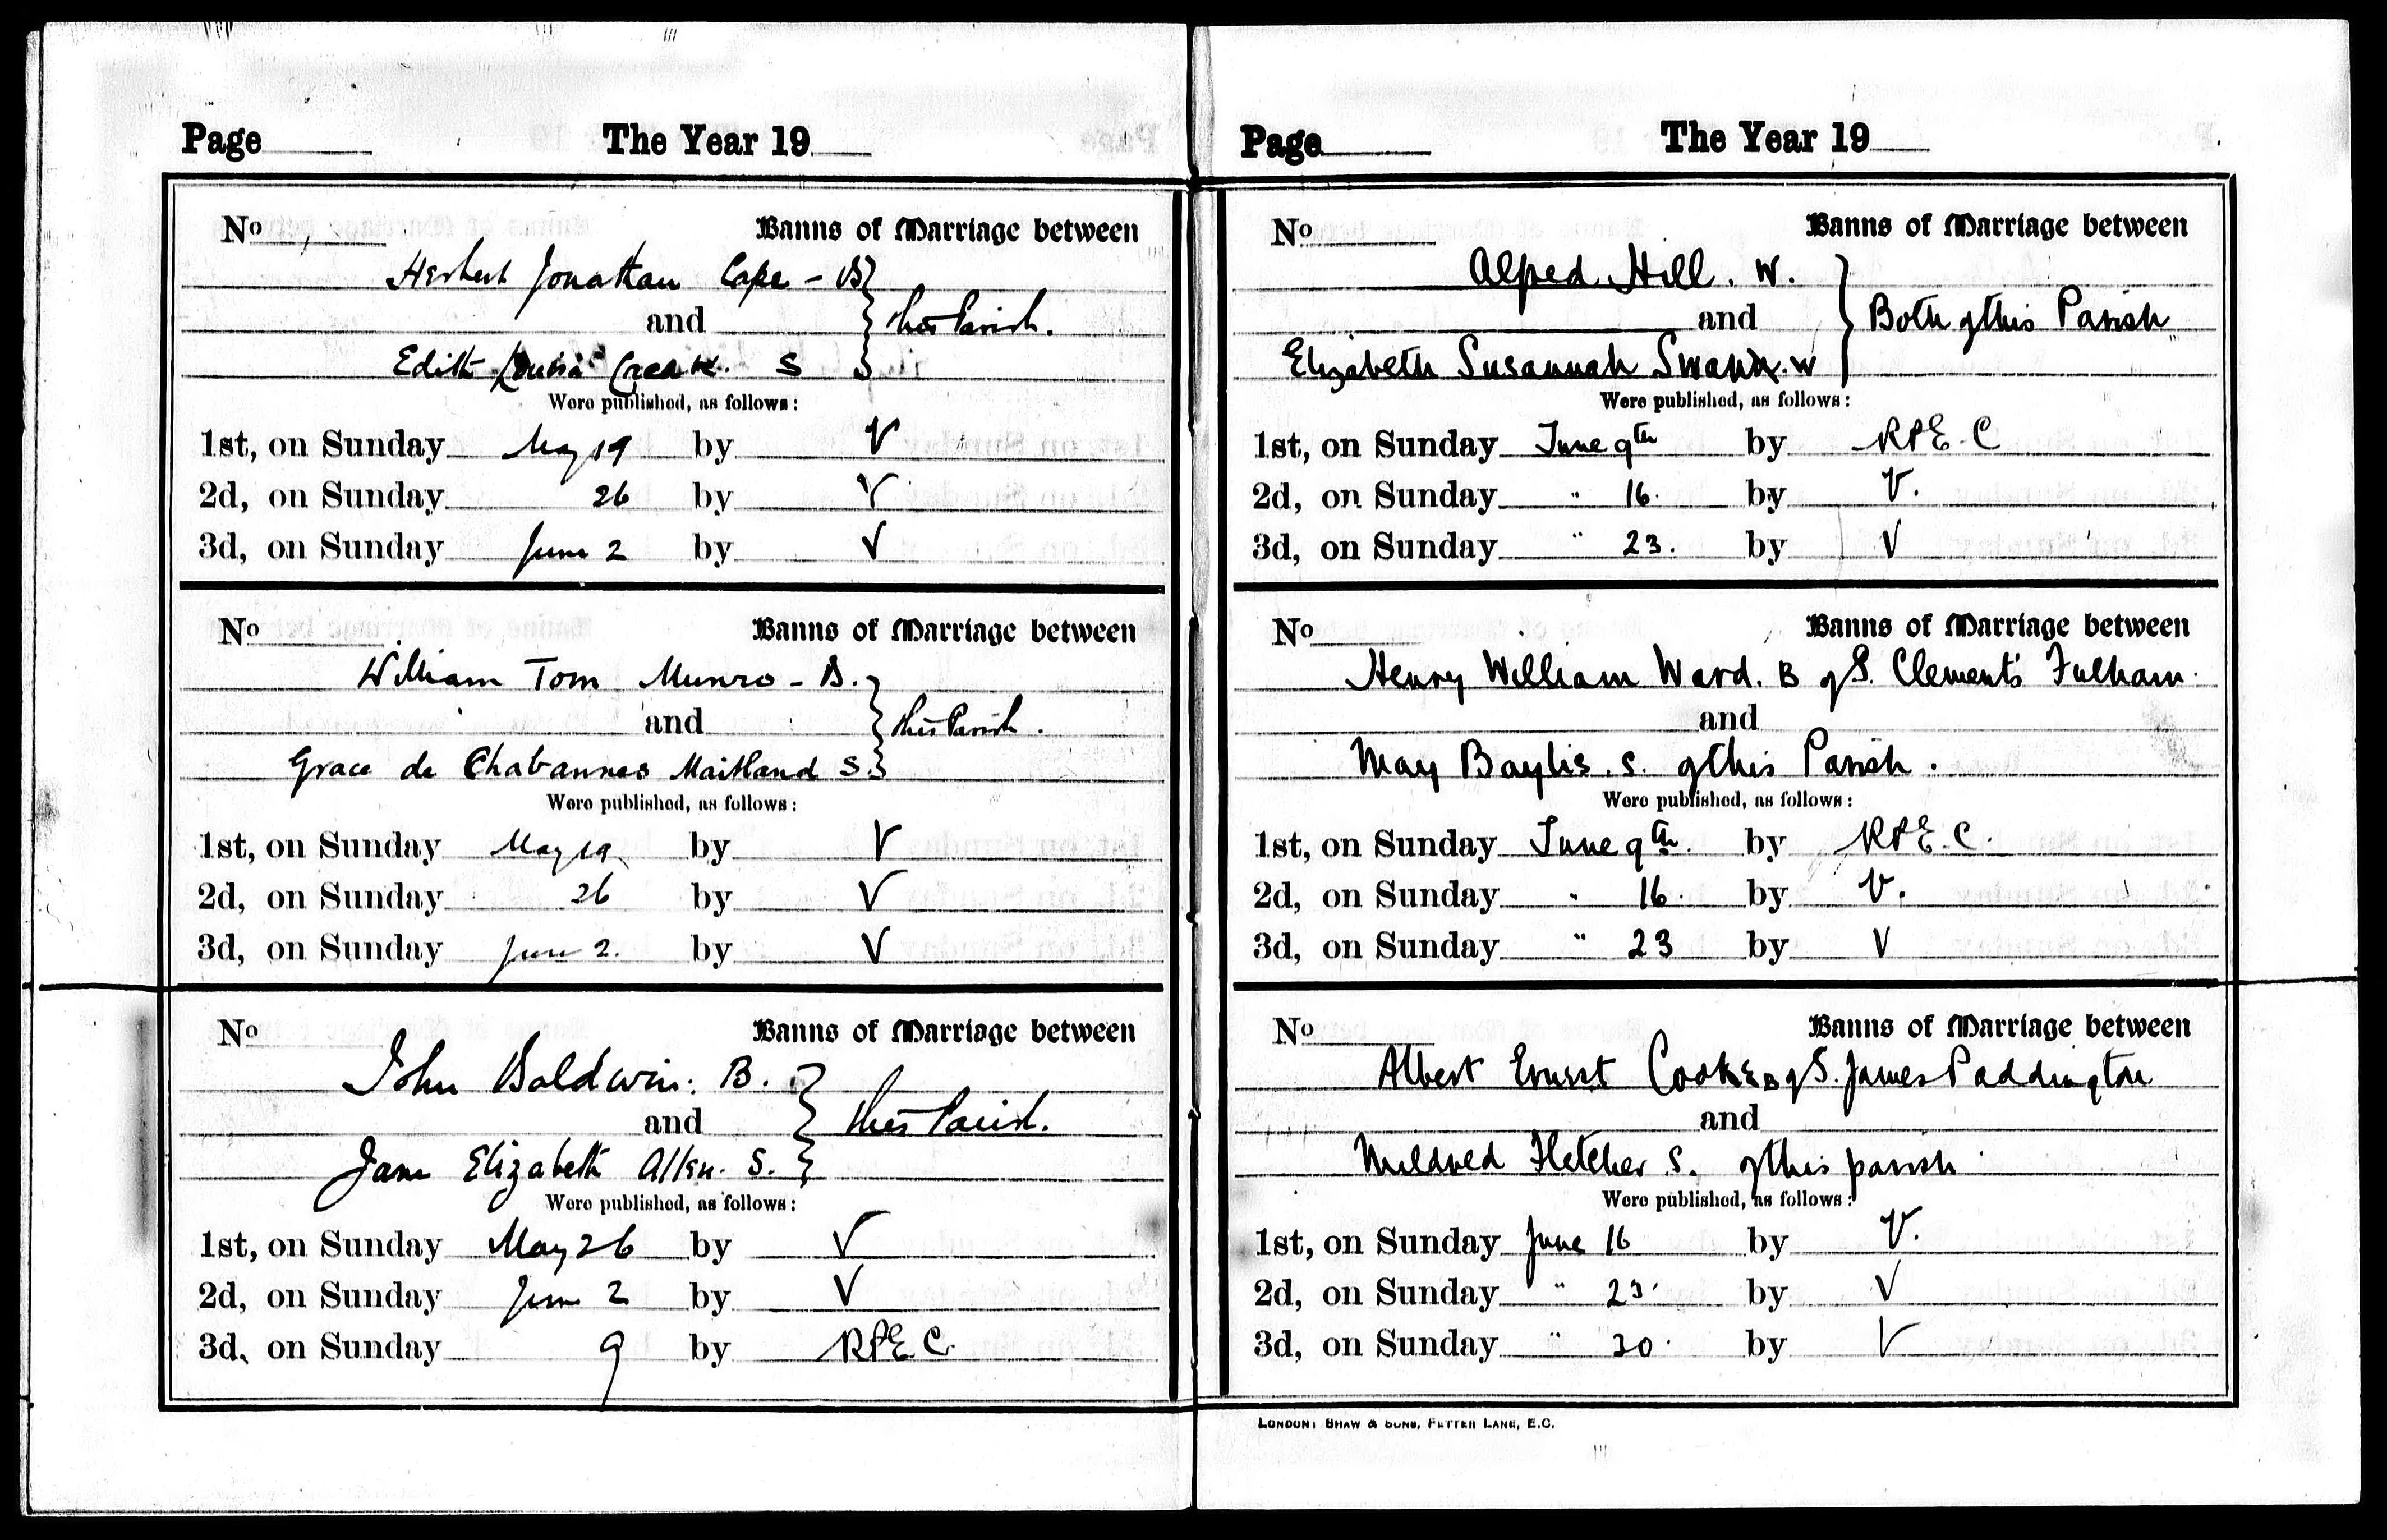 Page The Year 19
No Banns of Marriage between
Herbert Jonathan Cape - B
and this Parish.
Edith Louisa Creak. S
Were published, as follows:
1st, on Sunday May 19 by V
2d, on Sunday 26 by V
3d, on Sunday June 2 by V
No Banns of Marriage between
William Tom Munro - B.
and this Parish.
Grace de Chabannes Maitland S.
Were published, as follows:
1st, on Sunday May 19 by V
2d, on Sunday 26 by V
3d, on Sunday June 2. by V
No Banns of Marriage between
John Baldwin. B.
and this Parish.
Jane Elizabeth Allen. S.
Were published, as follows:
1st, on Sunday May 26 by V
2d, on Sunday June 2 by V
3d, on Sunday 9 by RPE.C.
Page The Year 19
No Banns of Marriage between
Alfred Hill. W.
and Both of this Parish
Elizabeth Susannah Swann. W
Were published, as follows:
1st, on Sunday June 9th by RPE.C
2d, on Sunday " 16. by V.
3d, on Sunday " 23. by V
No Banns of Marriage between
Henry William Ward. B of S. Clement's Fulham.
and
May Baylis. S. of this Parish.
Were published, as follows:
1st, on Sunday June 9th. by RPE.C.
2d, on Sunday " 16. by V.
3d, on Sunday " 23 by V
No Banns of Marriage between
Albert Ernest Cooke B of S. James Paddington
and
Mildred Fletcher S. of this parish.
Were published, as follows:
1st, on Sunday June 16 by V.
2d, on Sunday " 23. by V
3d, on Sunday " 30. by V
LONDON: SHAW & SONS, FETTER LANE, E.C.